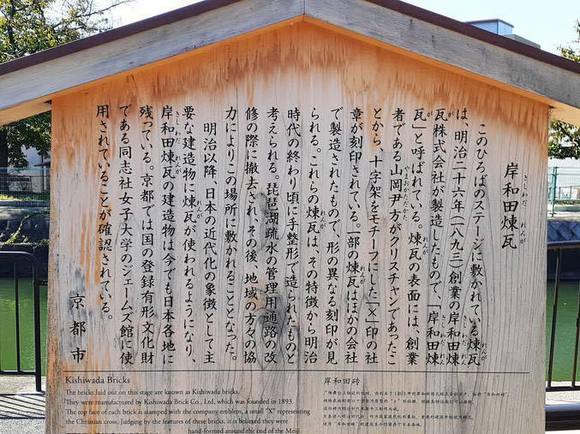 岸和田煉瓦
このひろばのステージに敷かれている煉瓦
は、明治二十六年(一八九三)創業の岸和田煉
瓦株式会社が製造したもので、「岸和田煉
瓦」と呼ばれている。煉瓦の表面には、創業
者である山岡尹方がクリスチャンであったこ
とから、十字架をモチーフにした「×」印の社
章が刻印されている。一部の煉瓦はほかの会社
で製造されたもので、形の異なる刻印が見
られる。これらの煉瓦は、その特徴から明治
時代の終わり頃に手整形で造られたものと
考えられる。琵琶湖疏水の管理用通路の改
修の際に撤去され、その後、地域の方々の協
力によりこの場所に敷かれることとなった。
明治以降、日本の近代化の象徴として主
要な建造物に煉瓦が使われるようになり、
岸和田煉瓦の建造物は今でも日本各地に
残っている。京都では国の登録有形文化財
である同志社女子大学のジェームズ館に使
用されていることが確認されている。
京都市
Kishiwada Bricks
The bricks laid out on this stage are known as Kishiwada bricks.
They were manufactured by Kishiwada Brick Co., Ltd, which was founded in 1893.
The top face of each brick is stamped with the company emblem, a small "X" representing
the Christian cross. Judging by the features of these bricks, it is believed they were
hand-formed around the end of the Meiji
岸和田砖